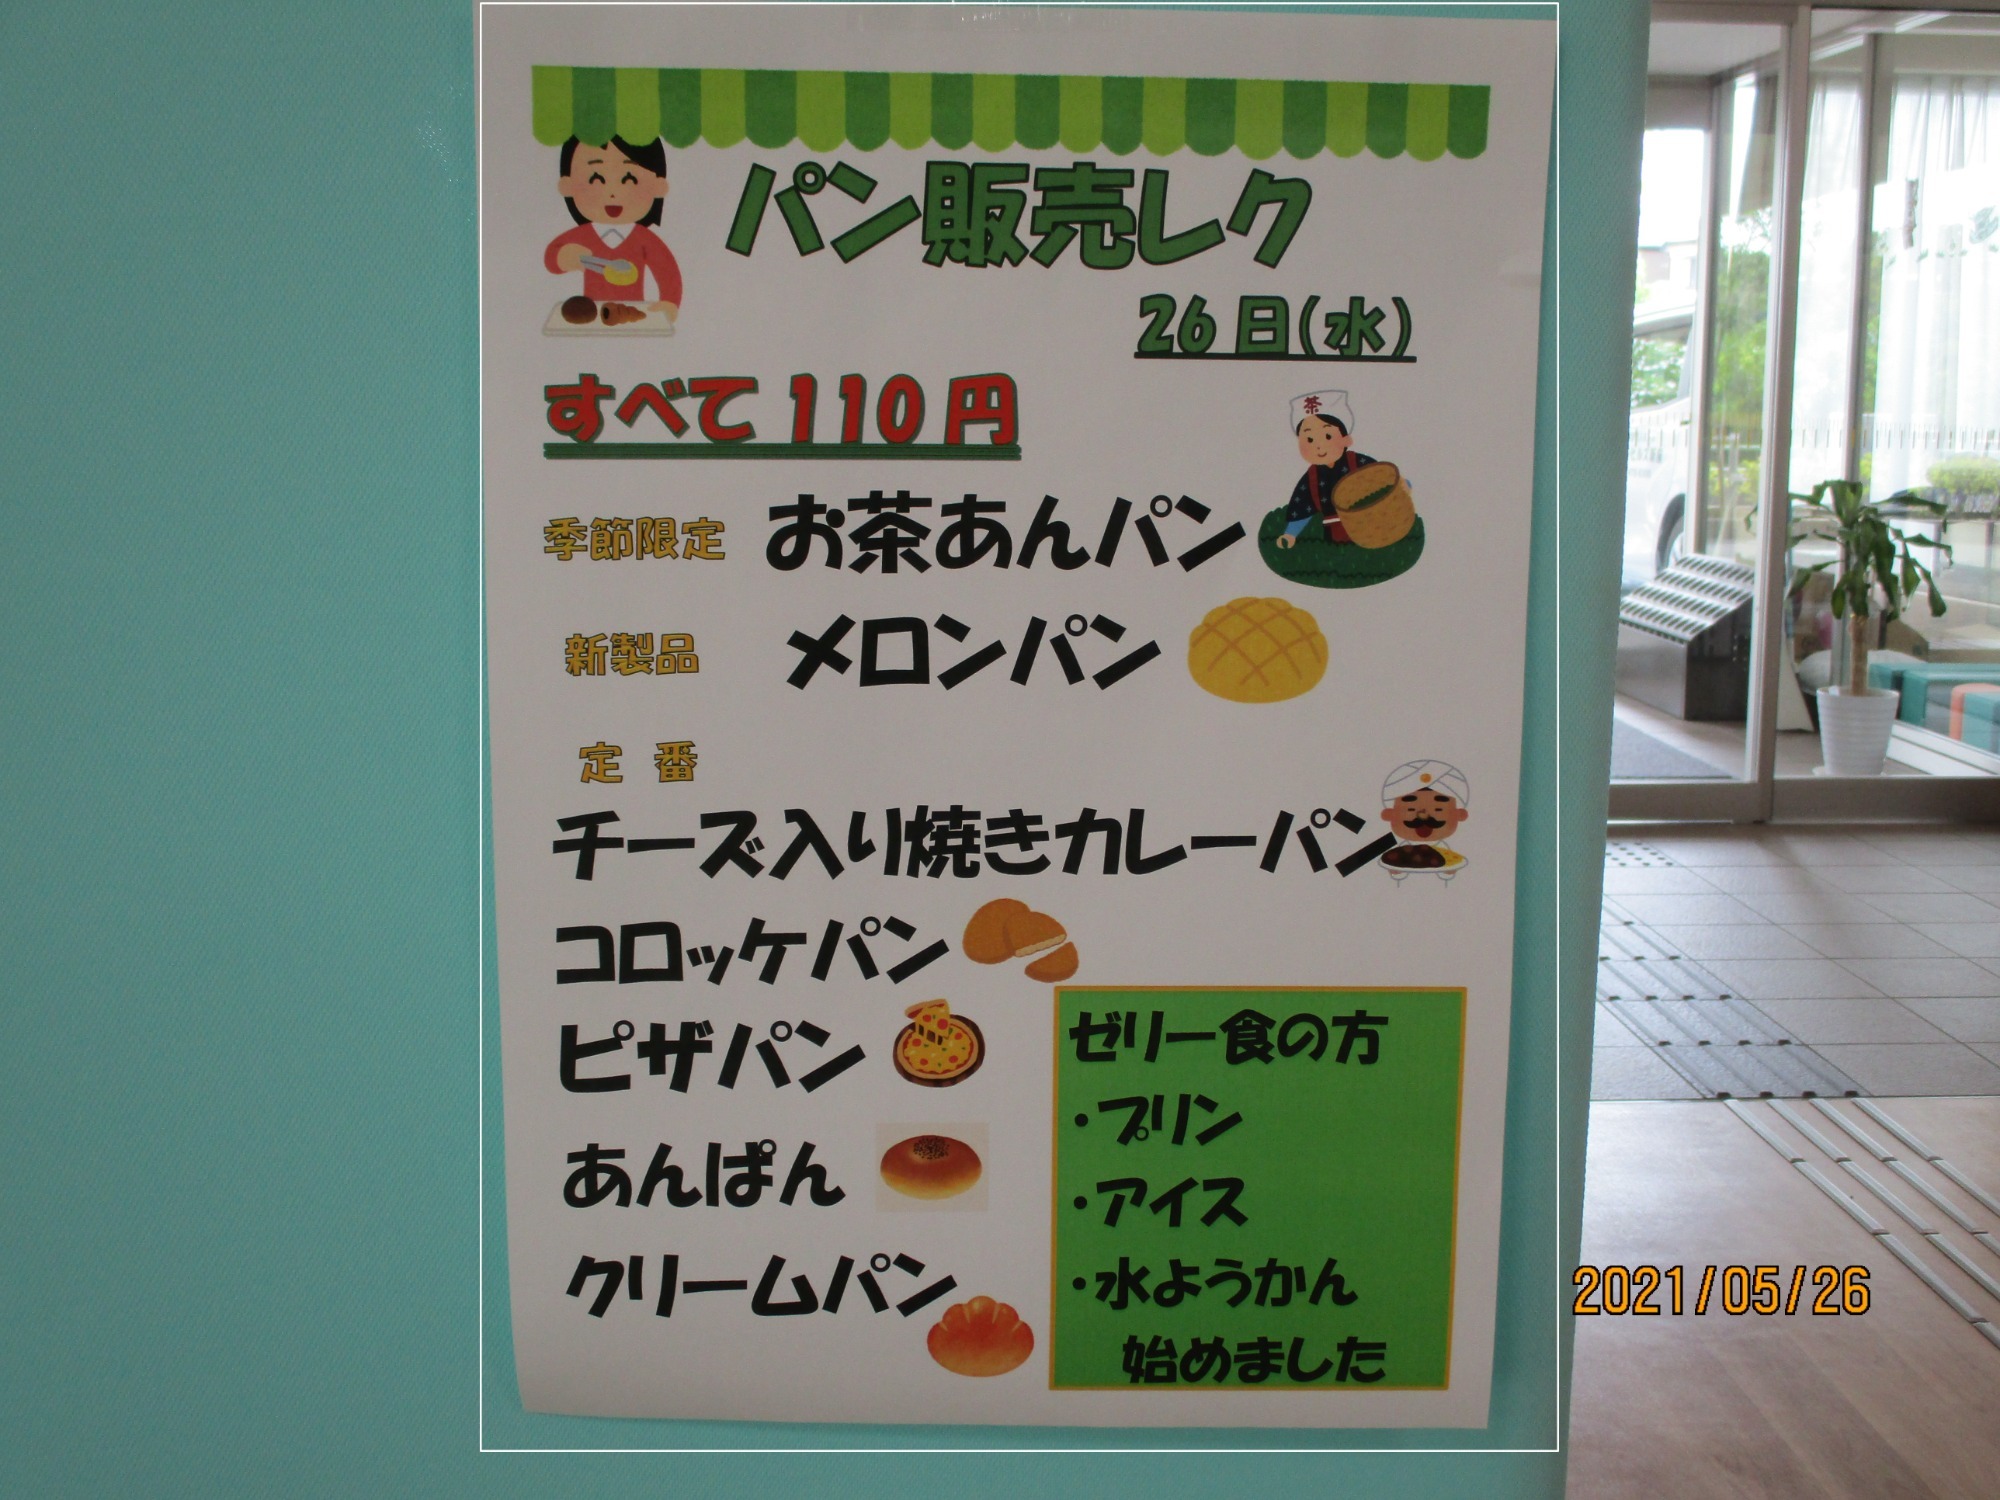 パン販売レク
26日(水)
すべて110円
茶
季節限定 お茶あんパン
新製品 メロンパン
定番
チーズ入り焼きカレーパン
コロッケパン
ピザパン
あんぱん
クリームパン
ゼリー食の方
・プリン
・アイス
・水ようかん
始めました
2021/05/26